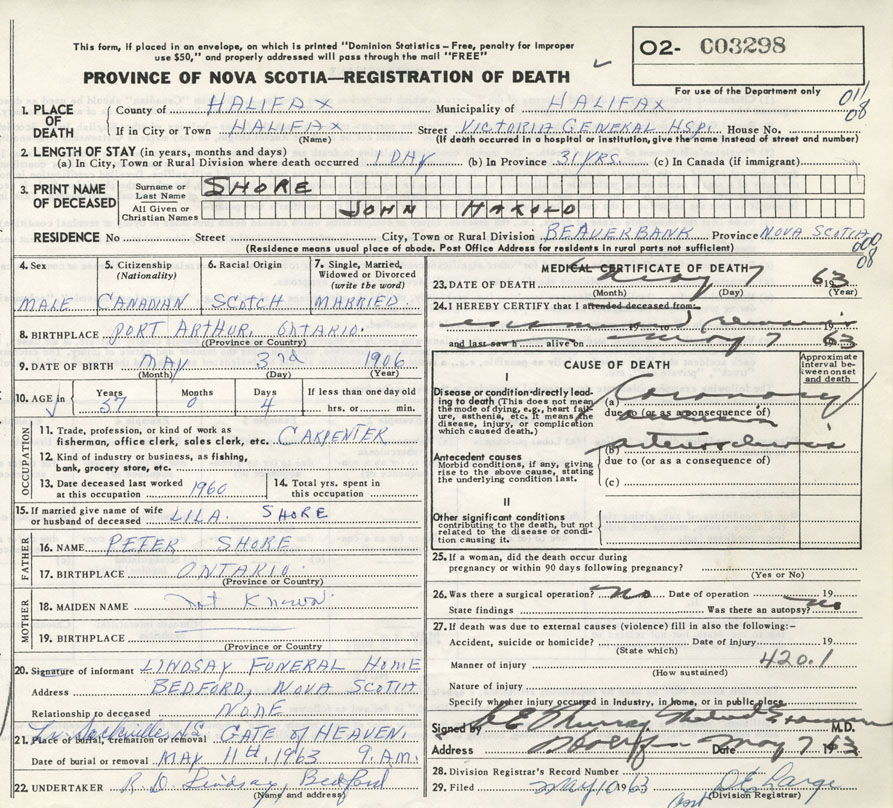 This form, if placed in an envelope, on which is printed "Dominion Statistics – Free, penalty for improper
use $50," and properly addressed will pass through the mail "FREE"
O2- C03298
PROVINCE OF NOVA SCOTIA—REGISTRATION OF DEATH
For use of the Department only
1. PLACE OF DEATH
County of HALIFAX Municipality of HALIFAX 011
08
If in City or Town HALIFAX Street VICTORIA GENERAL HSPi. House No.
(Name) (If death occurred in a hospital or institution, give the name instead of street and number)
2. LENGTH OF STAY (in years, months and days)
(a) In City, Town or Rural Division where death occurred 1 DAY (b) In Province 31 YRS. (c) In Canada (if immigrant)
3. PRINT NAME OF DECEASED
Surname or Last Name SHORE
All Given or Christian Names JOHN HAROLD
RESIDENCE No Street City, Town or Rural Division BEAVERBANK Province NOVA SCOTIA
(Residence means usual place of abode. Post Office Address for residents in rural parts not sufficient)
000
08
4. Sex MALE
5. Citizenship (Nationality) CANADIAN
6. Racial Origin SCOTCH
7. Single, Married, Widowed or Divorced (write the word) MARRIED.
8. BIRTHPLACE PORT ARTHUR, ONTARIO.
(Province or Country)
9. DATE OF BIRTH MAY 3rd 1906
(Month) (Day) (Year)
10. AGE in Years 57 Months 0 Days 4 If less than one day old hrs. or min.
OCCUPATION
11. Trade, profession, or kind of work as
fisherman, office clerk, sales clerk, etc. CARPENTER
12. Kind of industry or business, as fishing,
bank, grocery store, etc.
13. Date deceased last worked
at this occupation 1960
14. Total yrs. spent in
this occupation
15. If married give name of wife
or husband of deceased LILA. SHORE
FATHER
16. NAME PETER SHORE
17. BIRTHPLACE ONTARIO.
(Province or Country)
MOTHER
18. MAIDEN NAME Not Known
19. BIRTHPLACE
(Province or Country
20. Signature of informant LINDSAY FUNERAL HOME
Address BEDFORD, NOVA SCOTIA
Relationship to deceased NONE
Lr. Sackville N.S.
21. Place of burial, cremation or removal GATE OF HEAVEN.
Date of burial or removal MAY 11th, 1963 9. A.M.
22. UNDERTAKER R. D. Lindsay, Bedford
(Name and address)
MEDICAL CERTIFICATE OF DEATH
23. DATE OF DEATH May 7 1963
(Month) (Day) (Year)
24. I HEREBY CERTIFY that I attended deceased from:
examined 19 to remains 19
and last saw h alive on May 7 1963
CAUSE OF DEATH
Approximate interval between onset and death
I
Disease or condition directly leading to death (This does not mean the mode of dying, e.g., heart failure, asthenia, etc. It means the disease, injury, or complication which caused death.)
(a) Coronary
due to (or as a consequence of)
(b) arteriosclerosis
Antecedent causes
Morbid conditions, if any, giving rise to the above cause, stating the underlying condition last.
due to (or as a consequence of)
(c)
II
Other significant conditions
contributing to the death, but not related to the disease or condition causing it.
25. If a woman, did the death occur during
pregnancy or within 90 days following pregnancy?
(Yes or No)
26. Was there a surgical operation? no Date of operation 19
State findings Was there an autopsy? no
27. If death was due to external causes (violence) fill in also the following:–
Accident, suicide or homicide? Date of injury 19
(State which)
Manner of injury 420.1
(How sustained)
Nature of injury
Specify whether injury occurred in Industry, in home, or in public place
Signed by E Murray Medical Examiner M.D.
Address Date May 7 1963
28. Division Registrar's Record Number
29. Filed May 10 1963 D E Large
(Division Registrar)